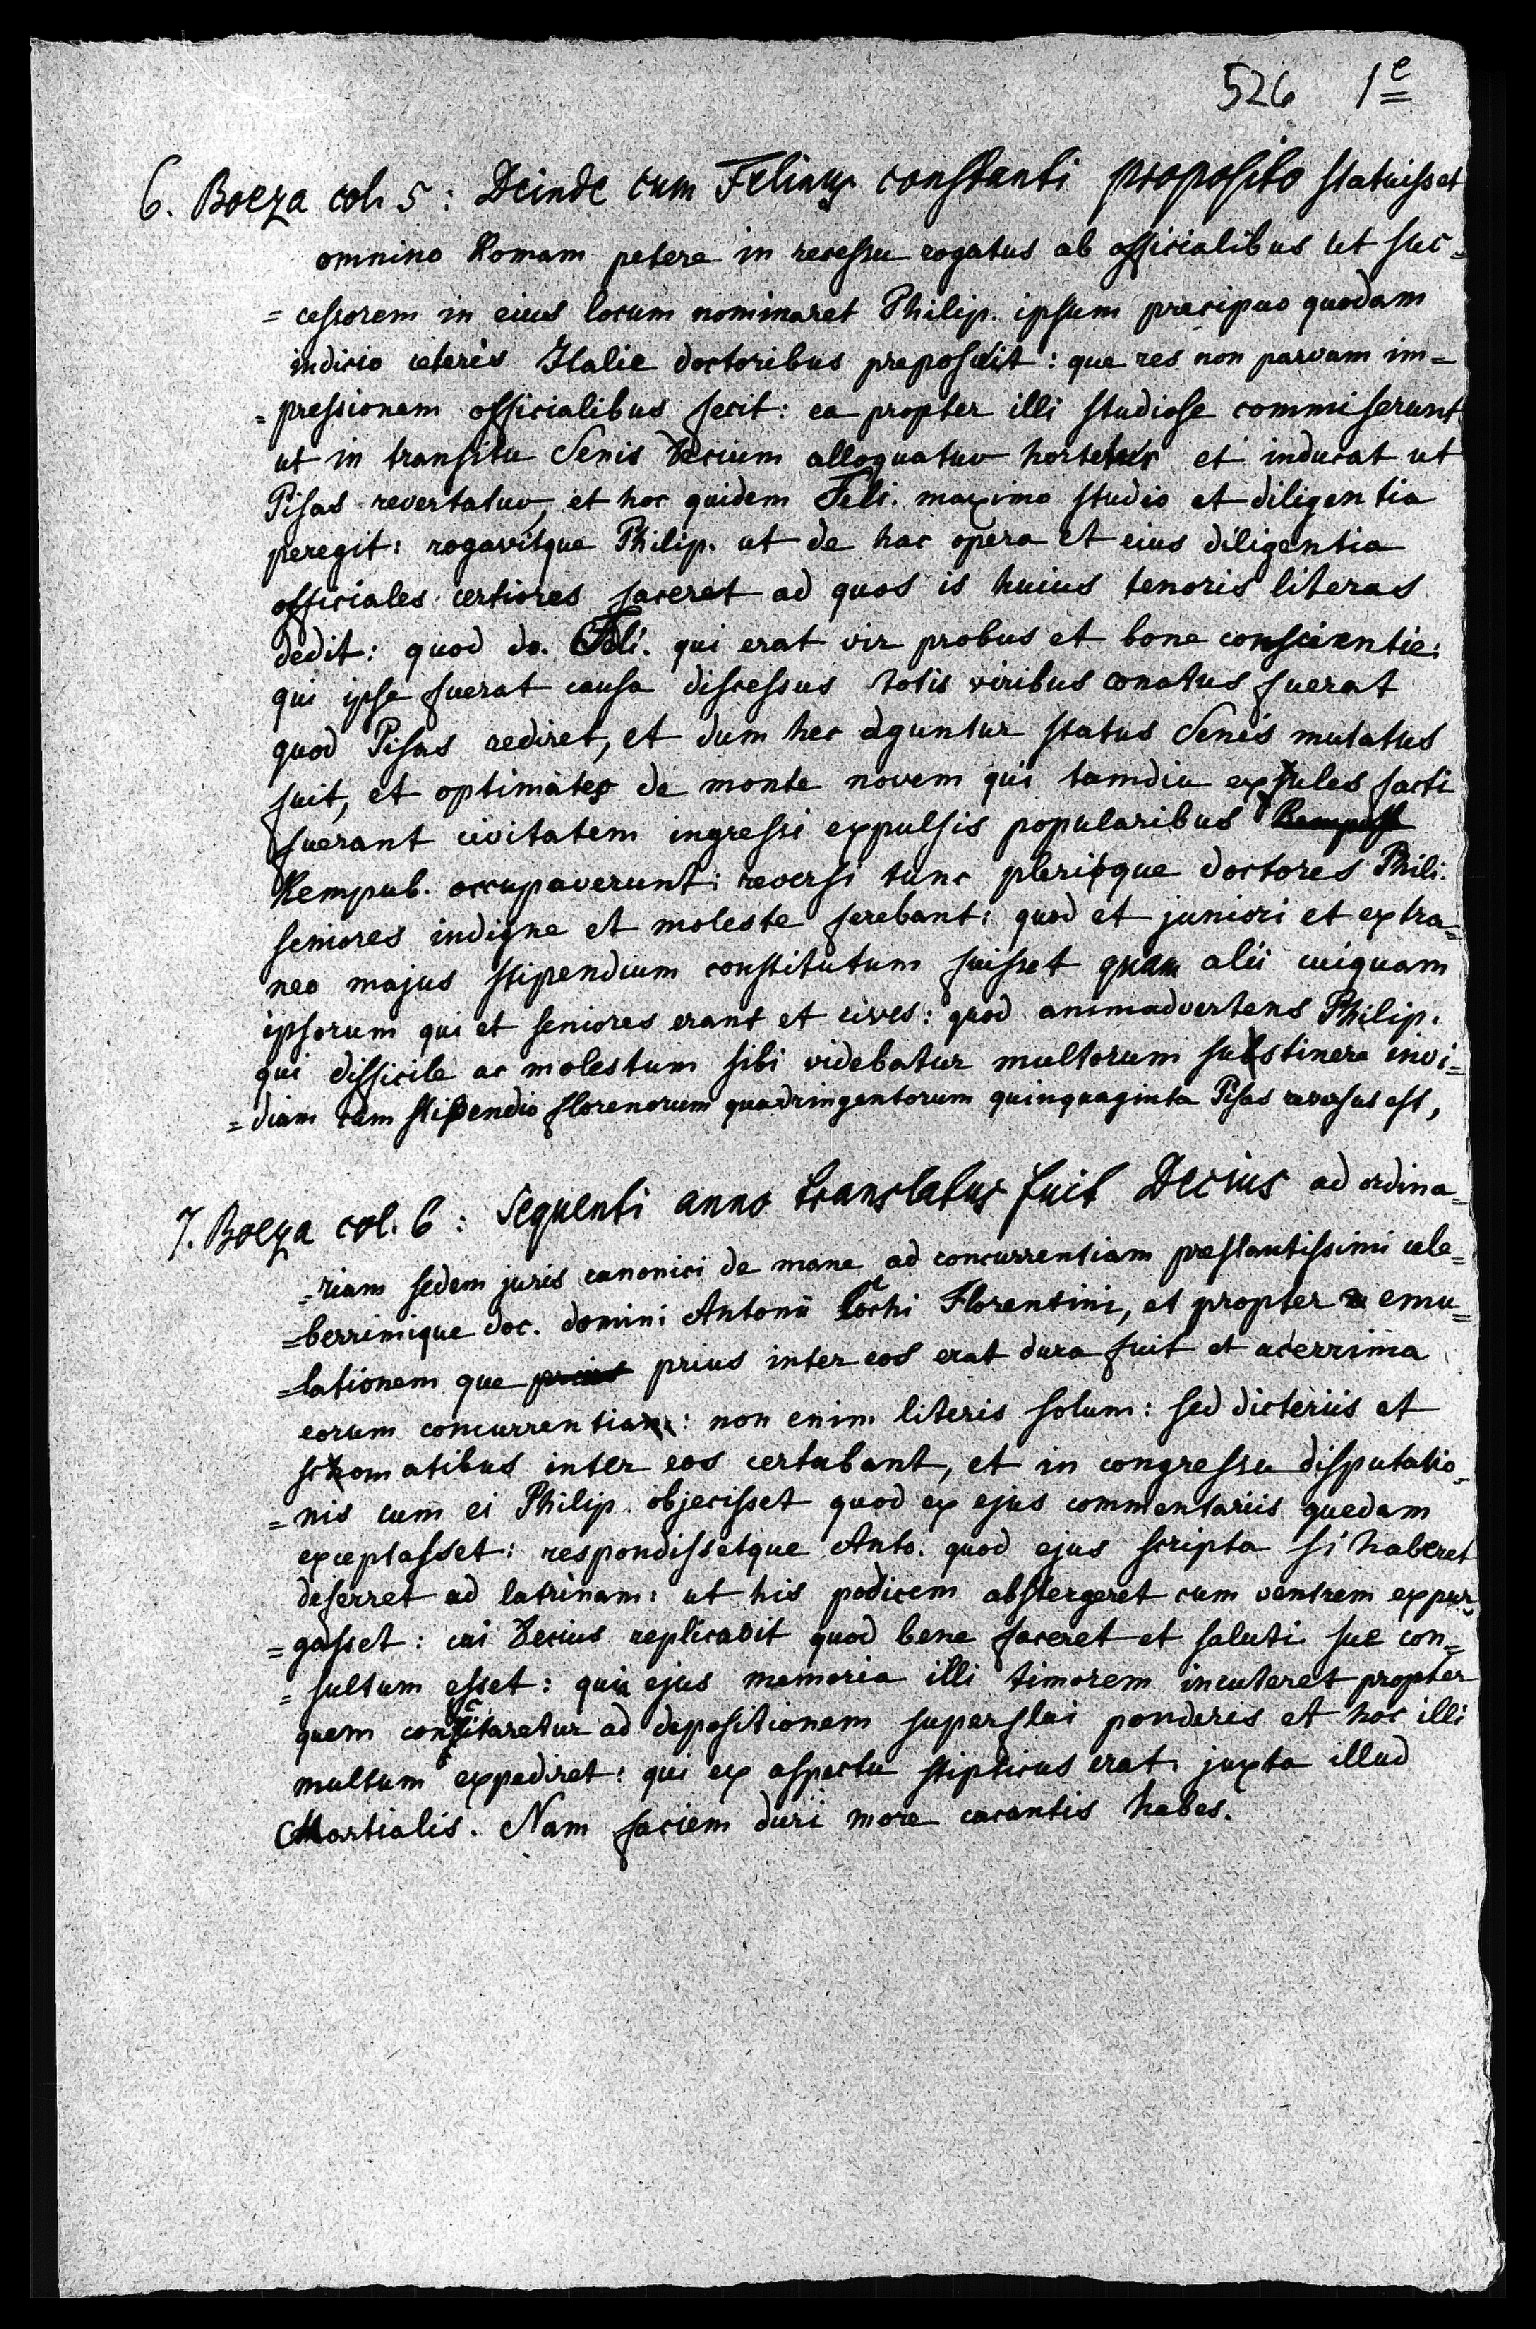 526 1e
6. Boeza col. 5: Deinde cum Felinus constanti proposito statuisset
omnino Romam petere in recessu rogatus ab officialibus ut suc=
=cessorem in eius locum nominaret Philip. ipsum precipuo quodam
indicio ceteris Italie doctoribus preposuit: que res non parvam im=
=pressionem officialibus fecit: ea propter illi studiose commiserunt
ut in transitu Senis Decium alloquatur hortetur et inducat ut
Pisas revertatur, et hoc quidem Feli. maximo studio et diligentia
peregit: rogavitque Philip. ut de hac opera et eius diligentia
officiales certiores faceret ad quos is huius tenoris literas
dedit: quod do. Feli. qui erat vir probus et bone conscientie:
qui ipse fuerat causa discessus totis viribus conatus fuerat
quod Pisas rediret, et dum hec aguntur status Senis mutatus
fuit, et optimates de monte novem qui tamdiu exules facti
fuerant civitatem ingressi expulsis popularibus
Rempub. occupaverunt: reversi tunc plerique doctores Phili.
seniores indigne et moleste ferebant: quod et juniori et extra=
neo majus stipendium constitutum fuisset quam alii cuiquam
ipsorum qui et seniores erant et cives: quod animadvertens Philip.
qui difficile ac molestum sibi videbatur multorum sustinere invi=
=diam cum stipendio florenorum quadringentorum quinquaginta Pisas reversus est,
7. Boeza col. 6: Sequenti anno translatus fuit Decius ad ordina=
=riam sedem juris canonici de mane ad concurrentiam prestantissimi cele=
=berrimique doc. domini Antonii Cocchi Florentini, et propter emu=
=lationem que prius inter eos erat dura fuit et acerrima
eorum concurrentia: non enim literis solum: sed dicteriis et
scomatibus inter eos certabant, et in congressu disputatio=
=nis cum ei Philip. objecisset quod ex ejus commentariis quedam
exceptasset: respondissetque Anto. quod ejus scripta si haberet
deferret ad latrinam: ut his podicem abstergeret cum ventrem expur=
=gasset: cui Decius replicavit quod bene faceret et saluti sue con=
=sultum esset: quia ejus memoria illi timorem incuteret propter
quem concitaretur ad depositionem superflui ponderis et hoc illi
multum expediret: qui ex aspectu stipticus erat juxta illud
Martialis. Nam faciem duri more cacantis habes.